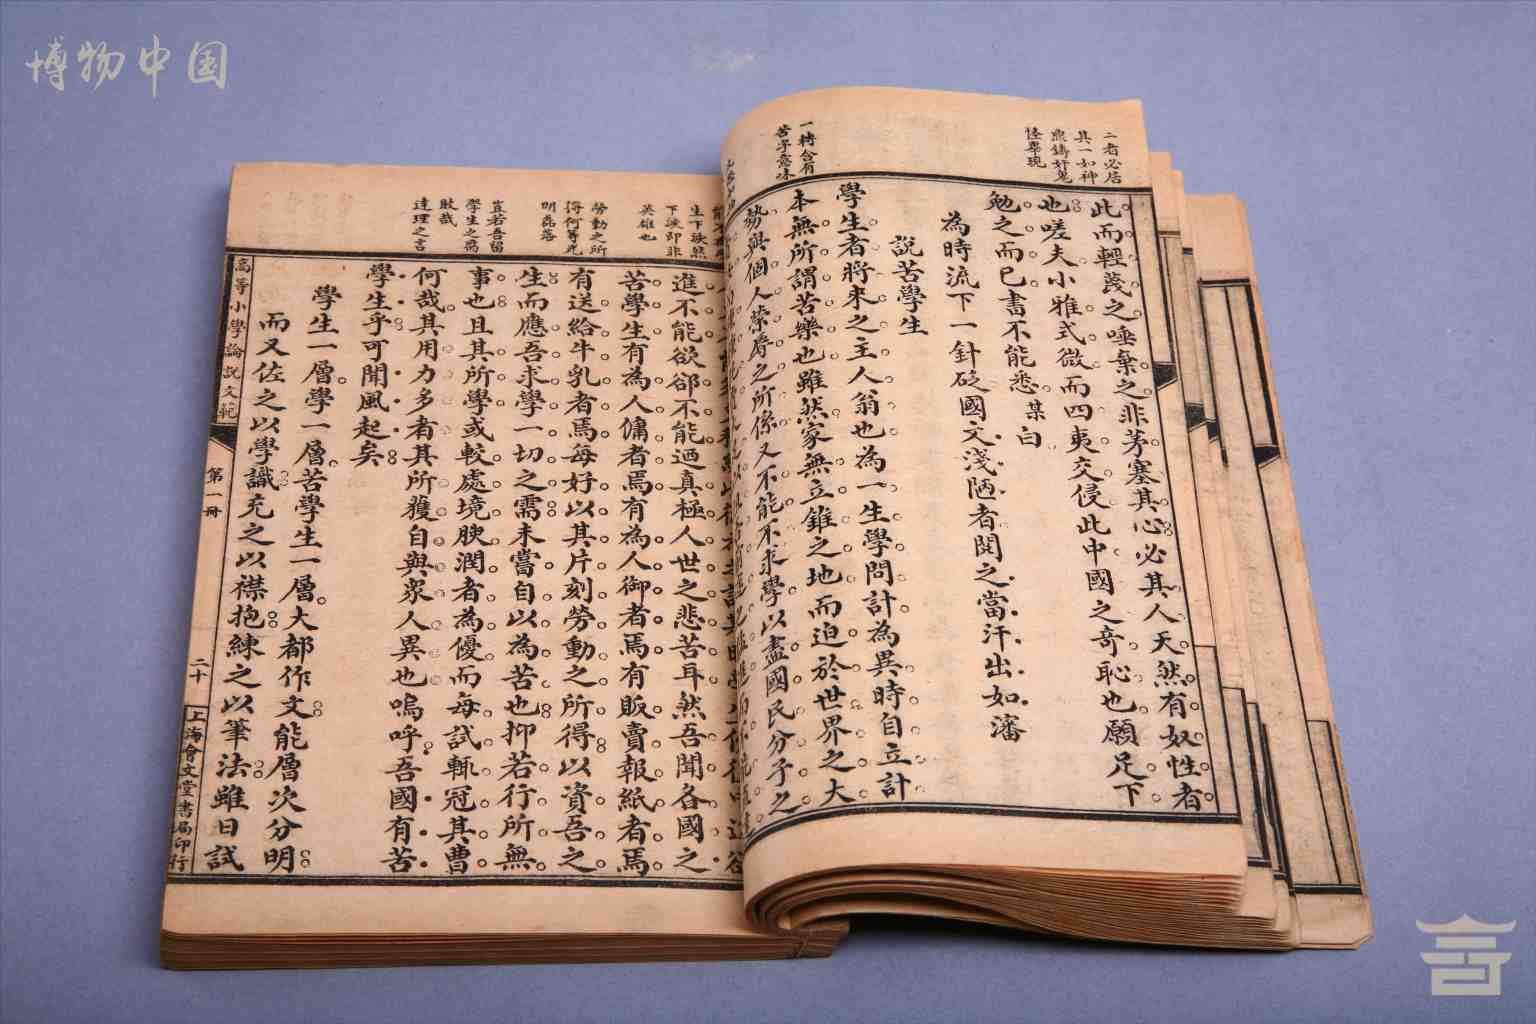 博物中国
二者必居
其一如神
鼎鑄奸鬼
怪畢現
此而輕蔑之唾棄之非茅塞其心必其人天然有奴性者
也嗟夫小雅式微而四夷交侵此中國之奇恥也願足下
勉之而已書不能悉某白
為時流下一針砭國文淺陋者閱之當汗出如瀋
說苦學生
學生者將來之主人翁也為一生學問計為異時自立計
一轉含有
苦字意味
本無所謂苦樂也雖然家無立錐之地而迫於世界之大
勢與個人榮辱之所係又不能不求學以盡國民分子之
生下驶然
下驶即非
英雄也
進不能欲卻不能迺真極人世之悲苦耳然吾聞各國之
苦學生有為人傭者焉有為人御者焉有販賣報紙者焉
勞動之所
得何等光
明磊落
有送給牛乳者焉每好以其片刻勞動之所得以資吾之
生而應吾求學一切之需未嘗自以為苦也抑若行所無
豈若吾留
學生之為
敗哉
達理之言
事也且其所學或較處境腴潤者為優而每試輒冠其曹
何哉其用力多者其所獲自與眾人異也嗚呼吾國有苦
學生乎可聞風起矣
學生一層學一層苦學生一層大都作文能層次分明
而又佐之以學識充之以襟抱練之以筆法雖日試
高等小學論說文範
第一冊
二十
上海會文堂書局印行